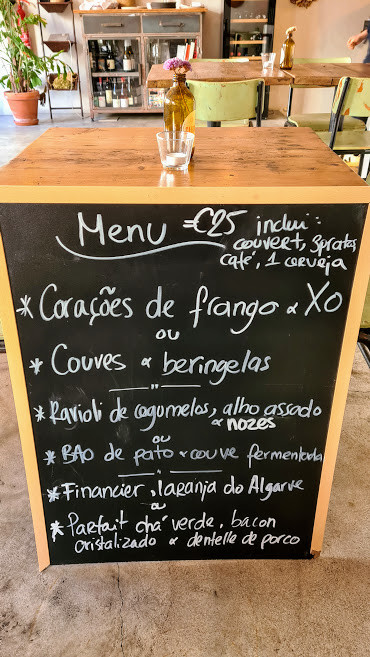 Menu = €25 inclui:
couvert, 3 pratos,
café, 1 cerveja
* Corações de frango & XO
ou
* Couves & beringelas
— " —
* Ravioli de cogumelos, alho assado
& nozes
ou
* BAO de pato & couve fermentada
— " —
* Financier, laranja do Algarve
ou
* Parfait chá verde, bacon
cristalizado & dentelle de porco